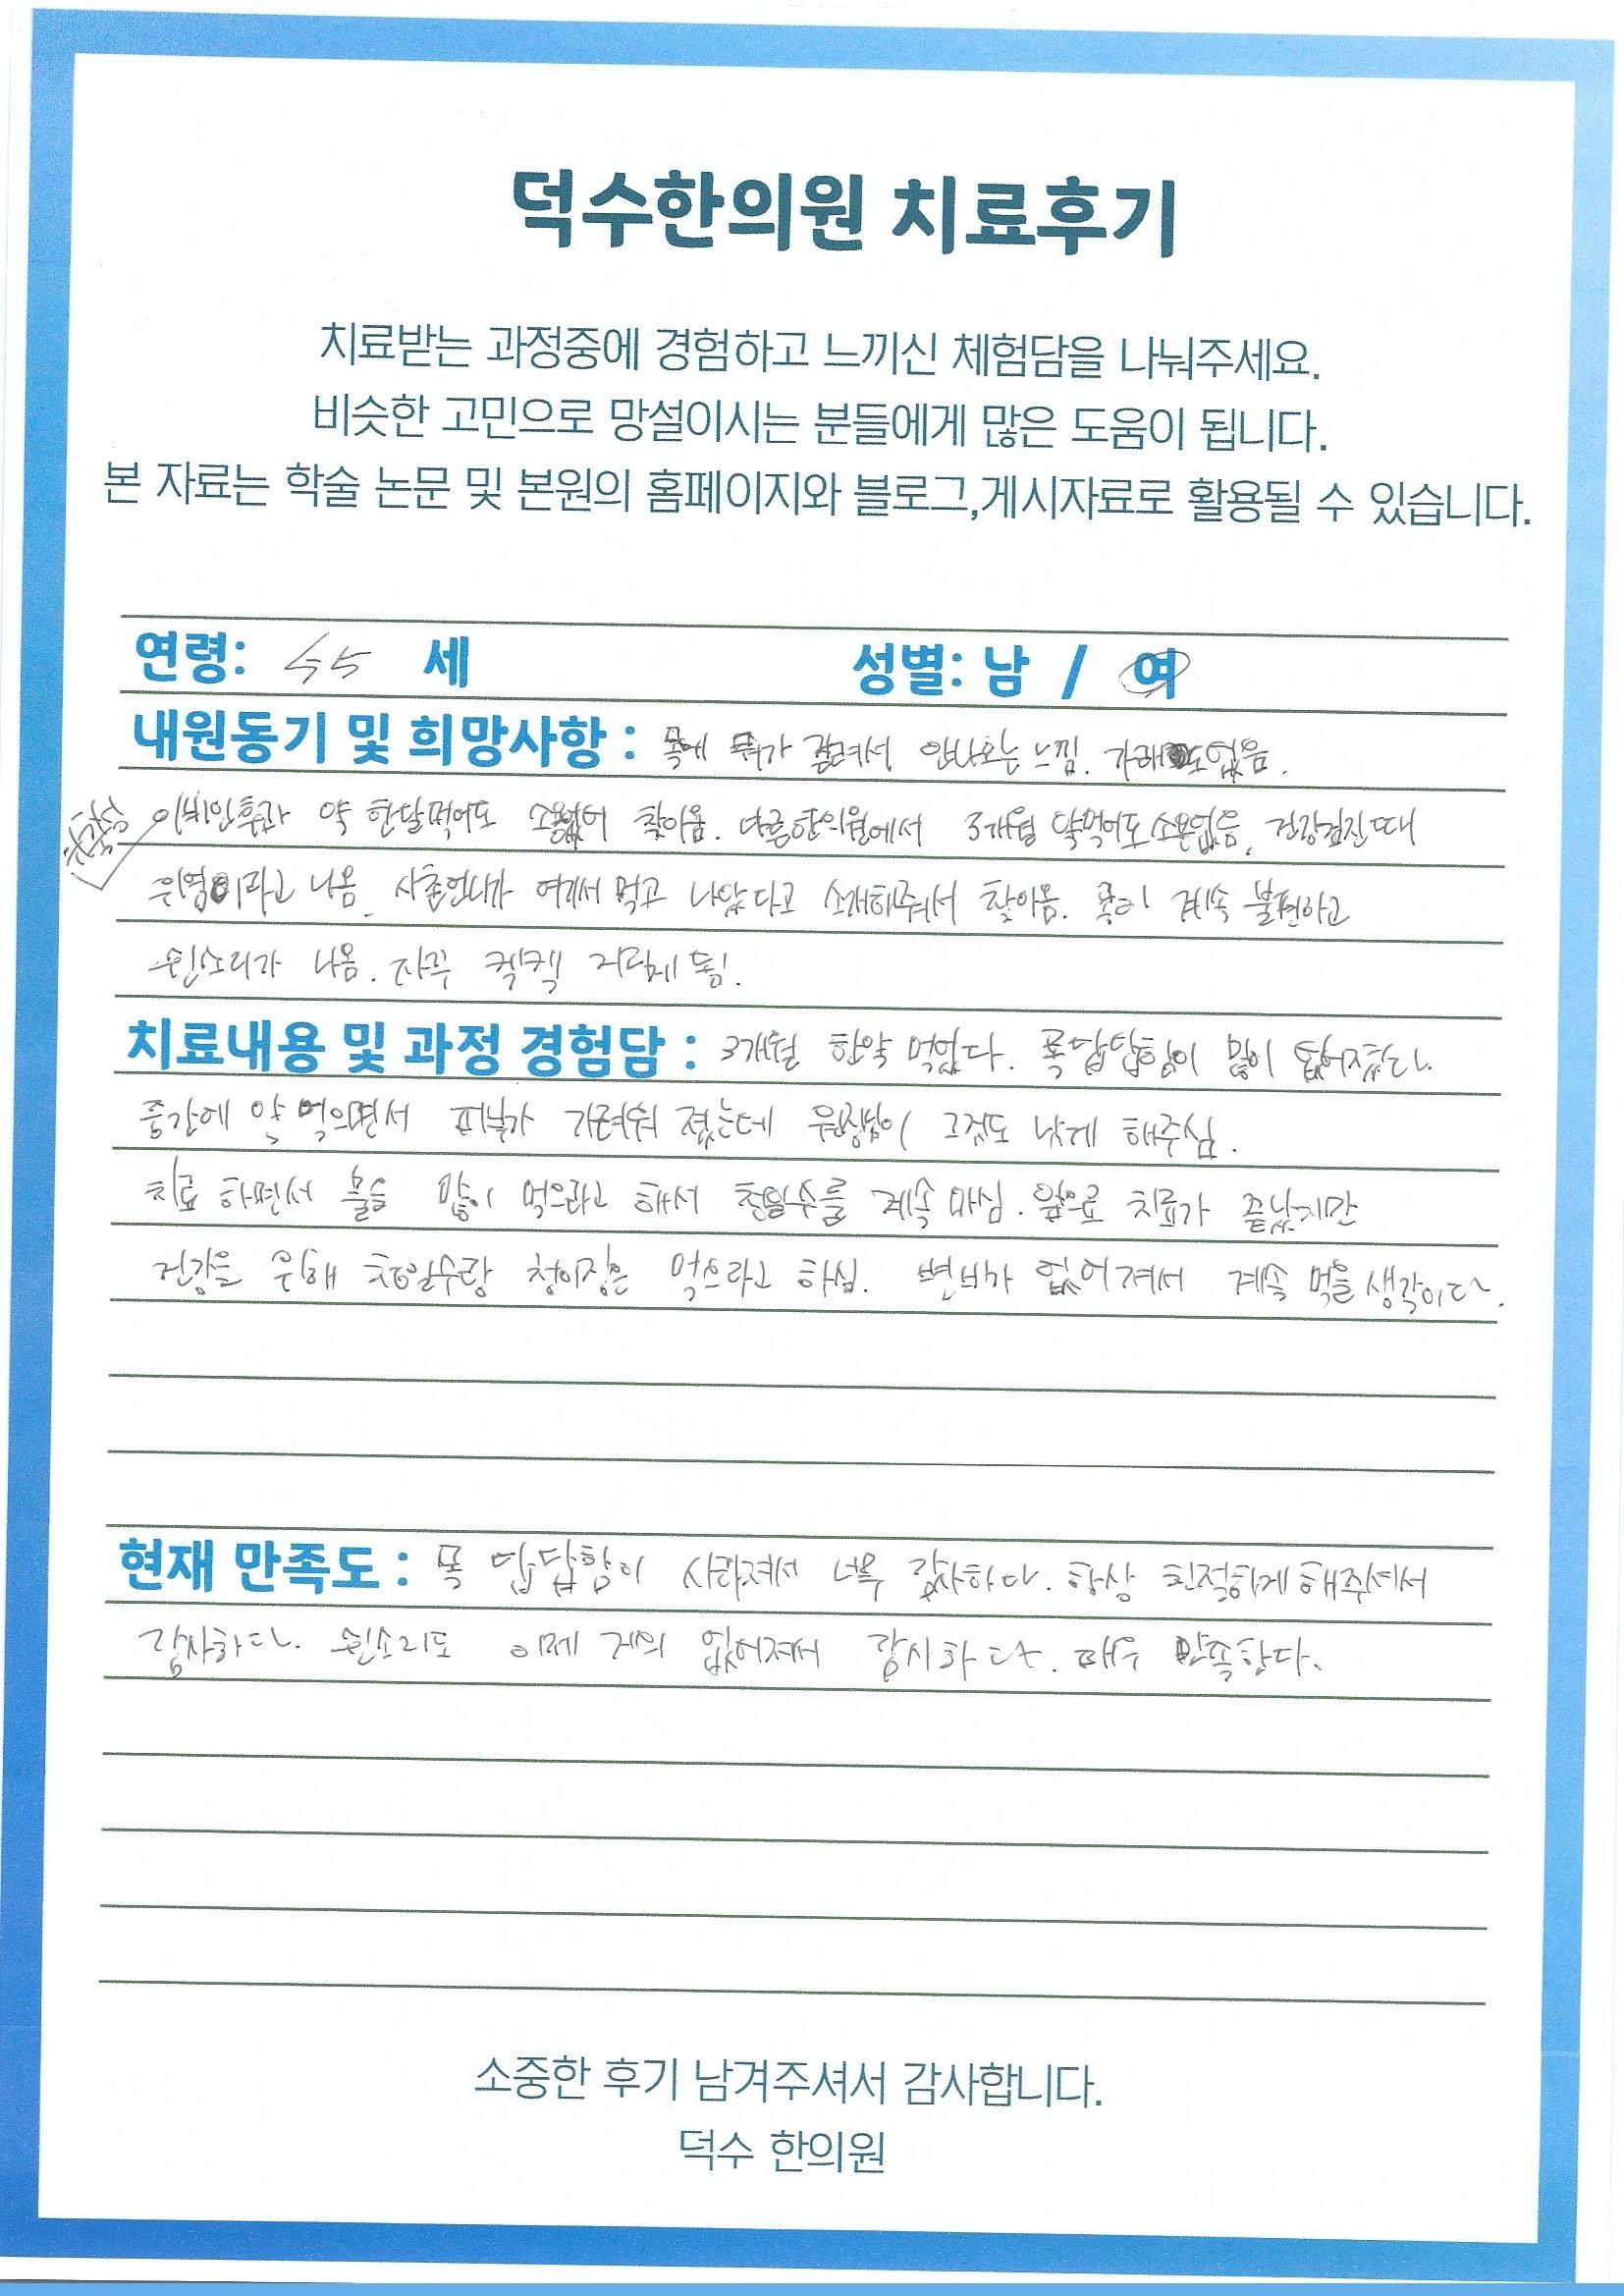 덕수한의원 치료후기
치료받는 과정중에 경험하고 느끼신 체험담을 나눠주세요.
비슷한 고민으로 망설이시는 분들에게 많은 도움이 됩니다.
본 자료는 학술 논문 및 본원의 홈페이지와 블로그,게시자료로 활용될 수 있습니다.
연령: 45 세 성별: 남 / 여
내원동기 및 희망사항 : 목에 뭐가 걸려서 안나오는 느낌. 가래도 없음.
이비인후과 약 한달먹어도 소용없어 찾아옴. 다른한의원에서 3개월 약먹어도 소용없음. 건강검진때
위염이라고 나옴. 사촌언니가 여기서 먹고 나았다고 소개해줘서 찾아옴. 목이 계속 불편하고
쉰소리가 나옴. 자꾸 켁켁 거리게 됨.
치료내용 및 과정 경험담 : 3개월 한약 먹었다. 목답답함이 많이 없어졌다.
중간에 약 먹으면서 피부가 가려워 졌는데 원장님이 그것도 낫게 해주심.
치료 하면서 물을 많이 먹으라고 해서 천일수를 계속 마심. 앞으로 치료가 끝났지만
건강을 위해 천일수랑 청이장은 먹으라고 하심. 변비가 없어져서 계속 먹을 생각이다.
현재 만족도 : 목 답답함이 사라져서 너무 감사하다. 항상 친절하게 해주셔서
감사하다. 쉰소리도 이제 거의 없어져서 감사하다. 매우 만족한다.
소중한 후기 남겨주셔서 감사합니다.
덕수 한의원